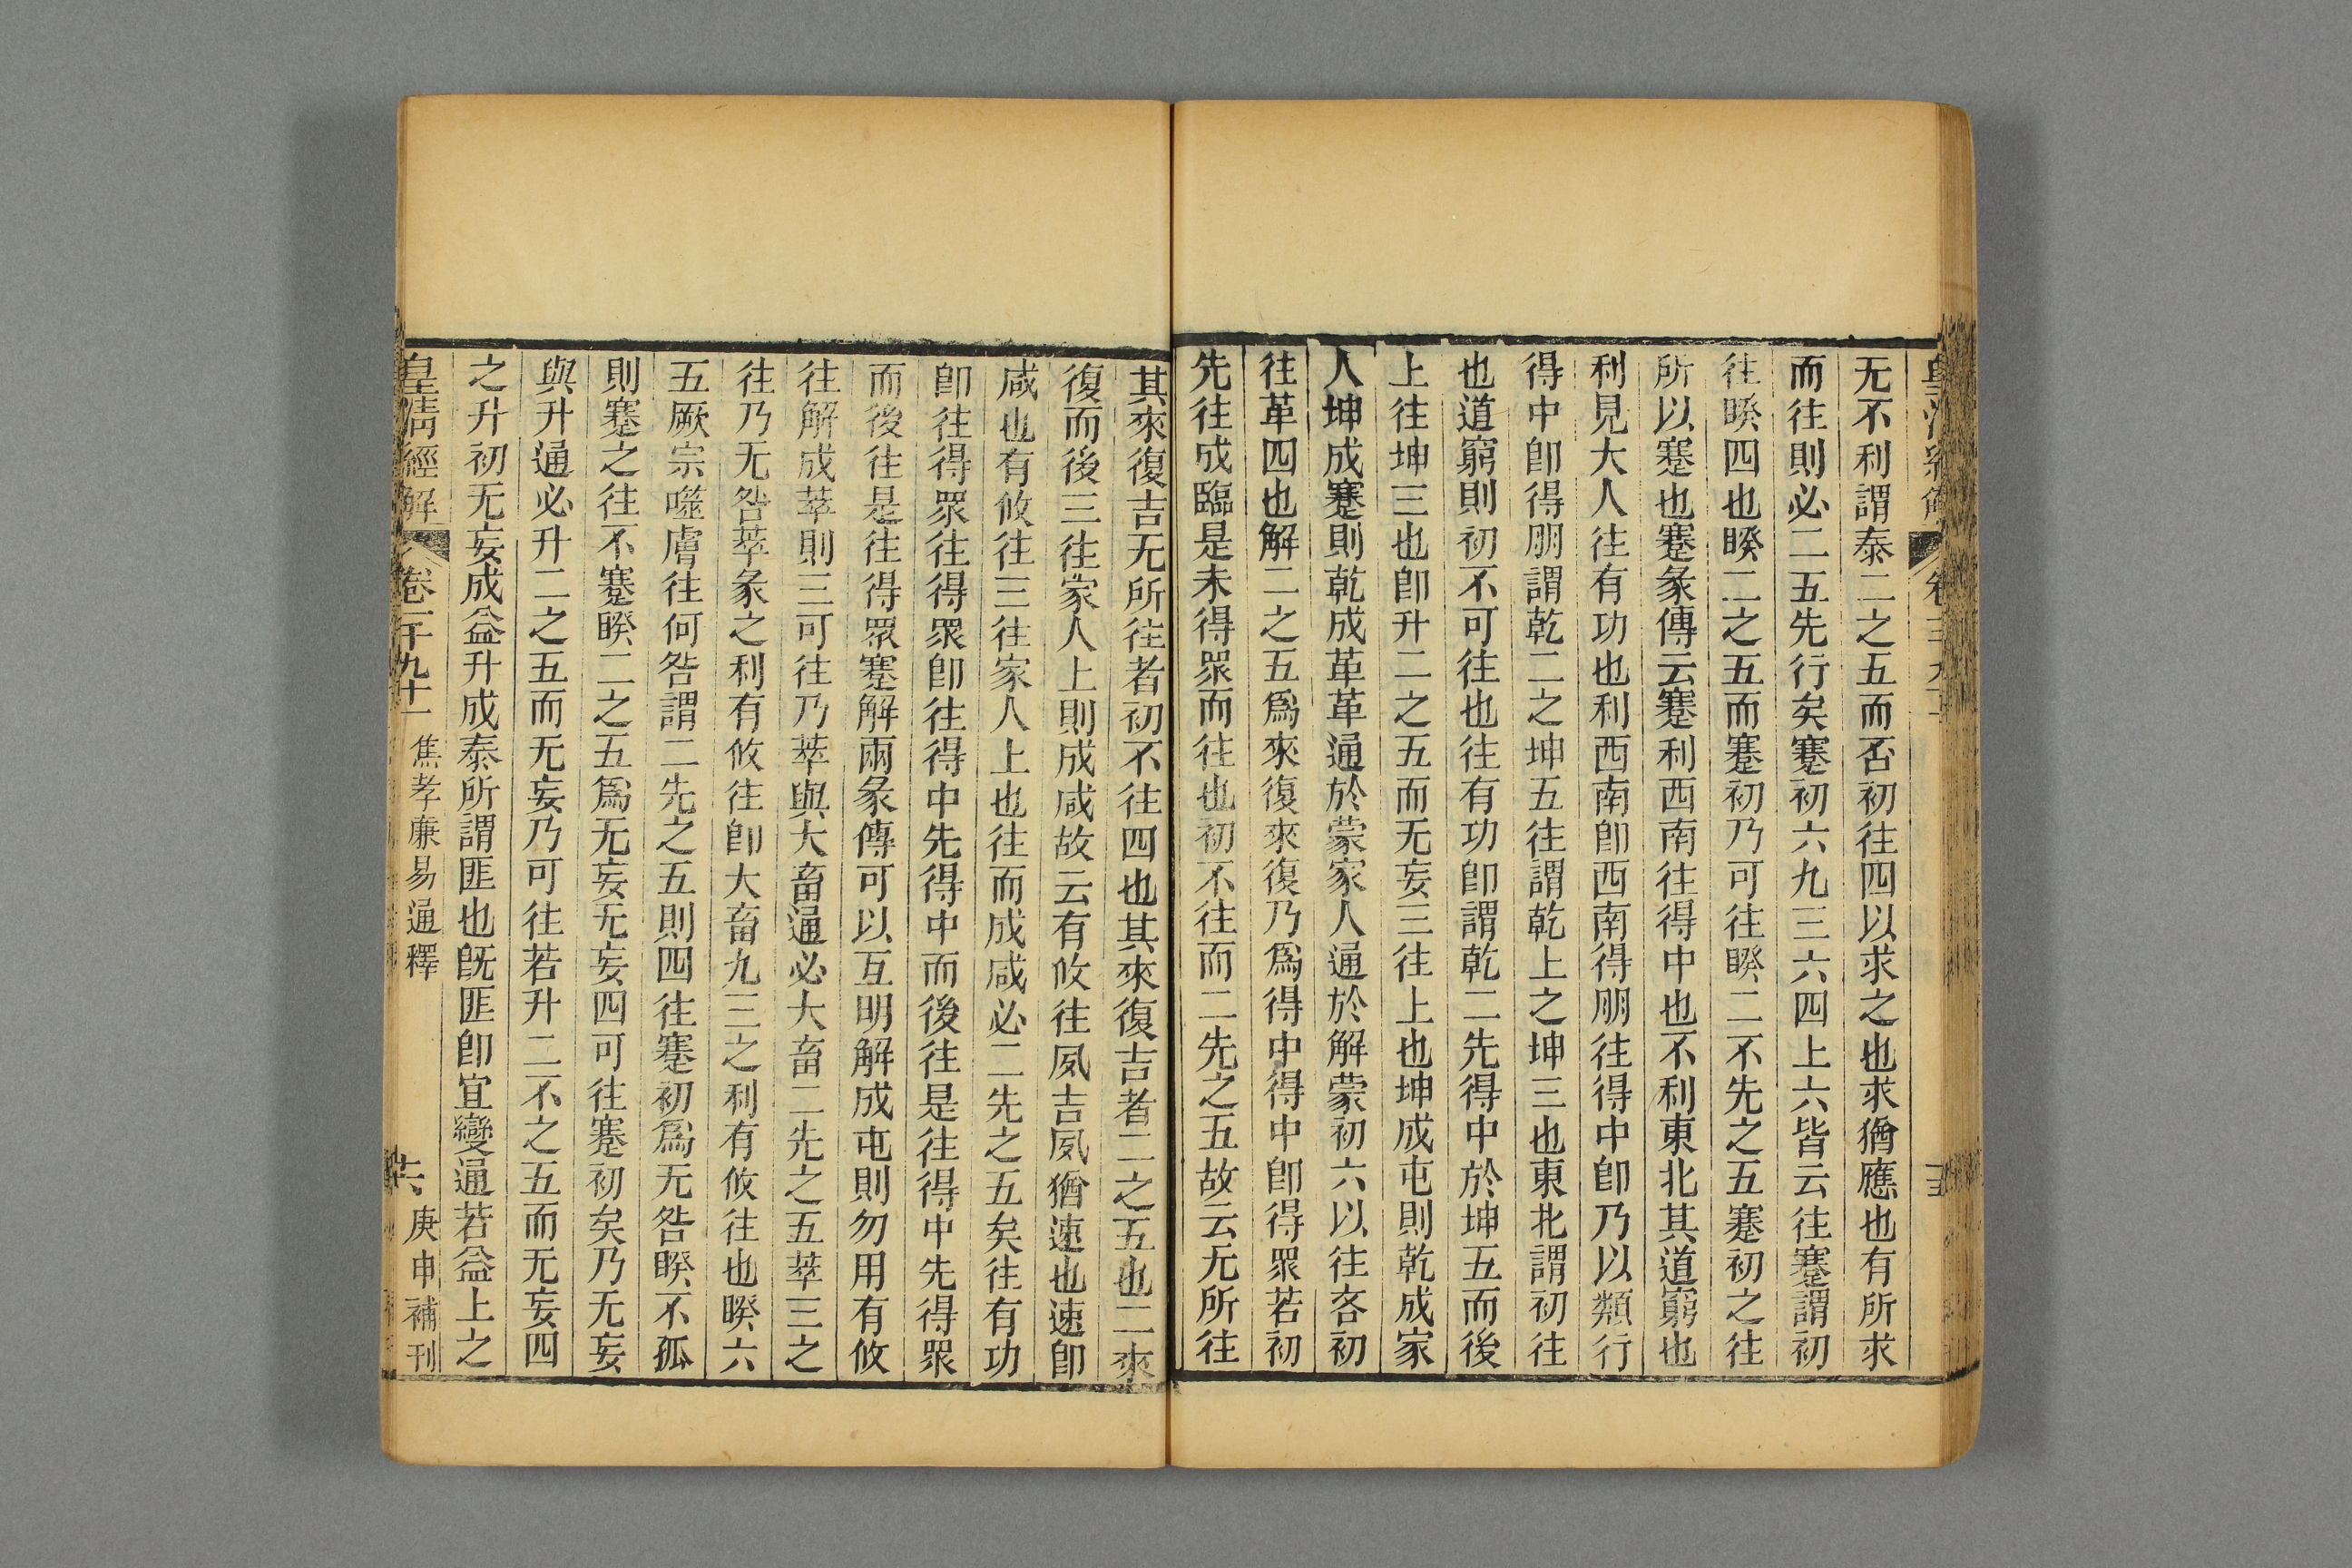 无不利謂泰二之五而否初往四以求之也求猶應也有所求
而往則必二五先行矣蹇初六九三六四上六皆云往蹇謂初
往睽四也睽二之五而蹇初乃可往睽二不先之五蹇初之往
所以蹇也蹇彖傳云蹇利西南往得中也不利東北其道窮也
利見大人往有功也利西南卽西南得朋往得中卽乃以類行
得中卽得朋謂乾二之坤五往謂乾上之坤三也東北謂初往
也道窮則初不可往也往有功卽謂乾二先得中於坤五而後
上往坤三也卽升二之五而无妄三往上也坤成屯則乾成家
人坤成蹇則乾成革革通於蒙家人通於解蒙初六以往吝初
往革四也解二之五爲來復來復乃爲得中得中卽得眾若初
先往成臨是未得眾而往也初不往而二先之五故云无所往
其來復吉无所往者初不往四也其來復吉者二之五也二來
復而後三往家人上則成咸故云有攸往夙吉夙猶速也速卽
咸也有攸往三往家人上也往而成咸必二先之五矣往有功
卽往得眾往得眾卽往得中先得中而後往是往得中先得眾
而後往是往得眾蹇解兩彖傳可以互明解成屯則勿用有攸
往解成萃則三可往乃萃與大畜通必大畜二先之五萃三之
往乃无咎萃彖之利有攸往卽大畜九三之利有攸往也睽六
五厥宗噬膚往何咎謂二先之五則四往蹇初爲无咎睽不孤
則蹇之往不蹇睽二之五爲无妄无妄四可往蹇初矣乃无妄
與升通必升二之五而无妄乃可往若升二不之五而无妄四
之升初无妄成益升成泰所謂匪也旣匪卽宜變通若益上之
皇清經解 卷一千九十一 焦孝廉易通釋 六 庚申補刊